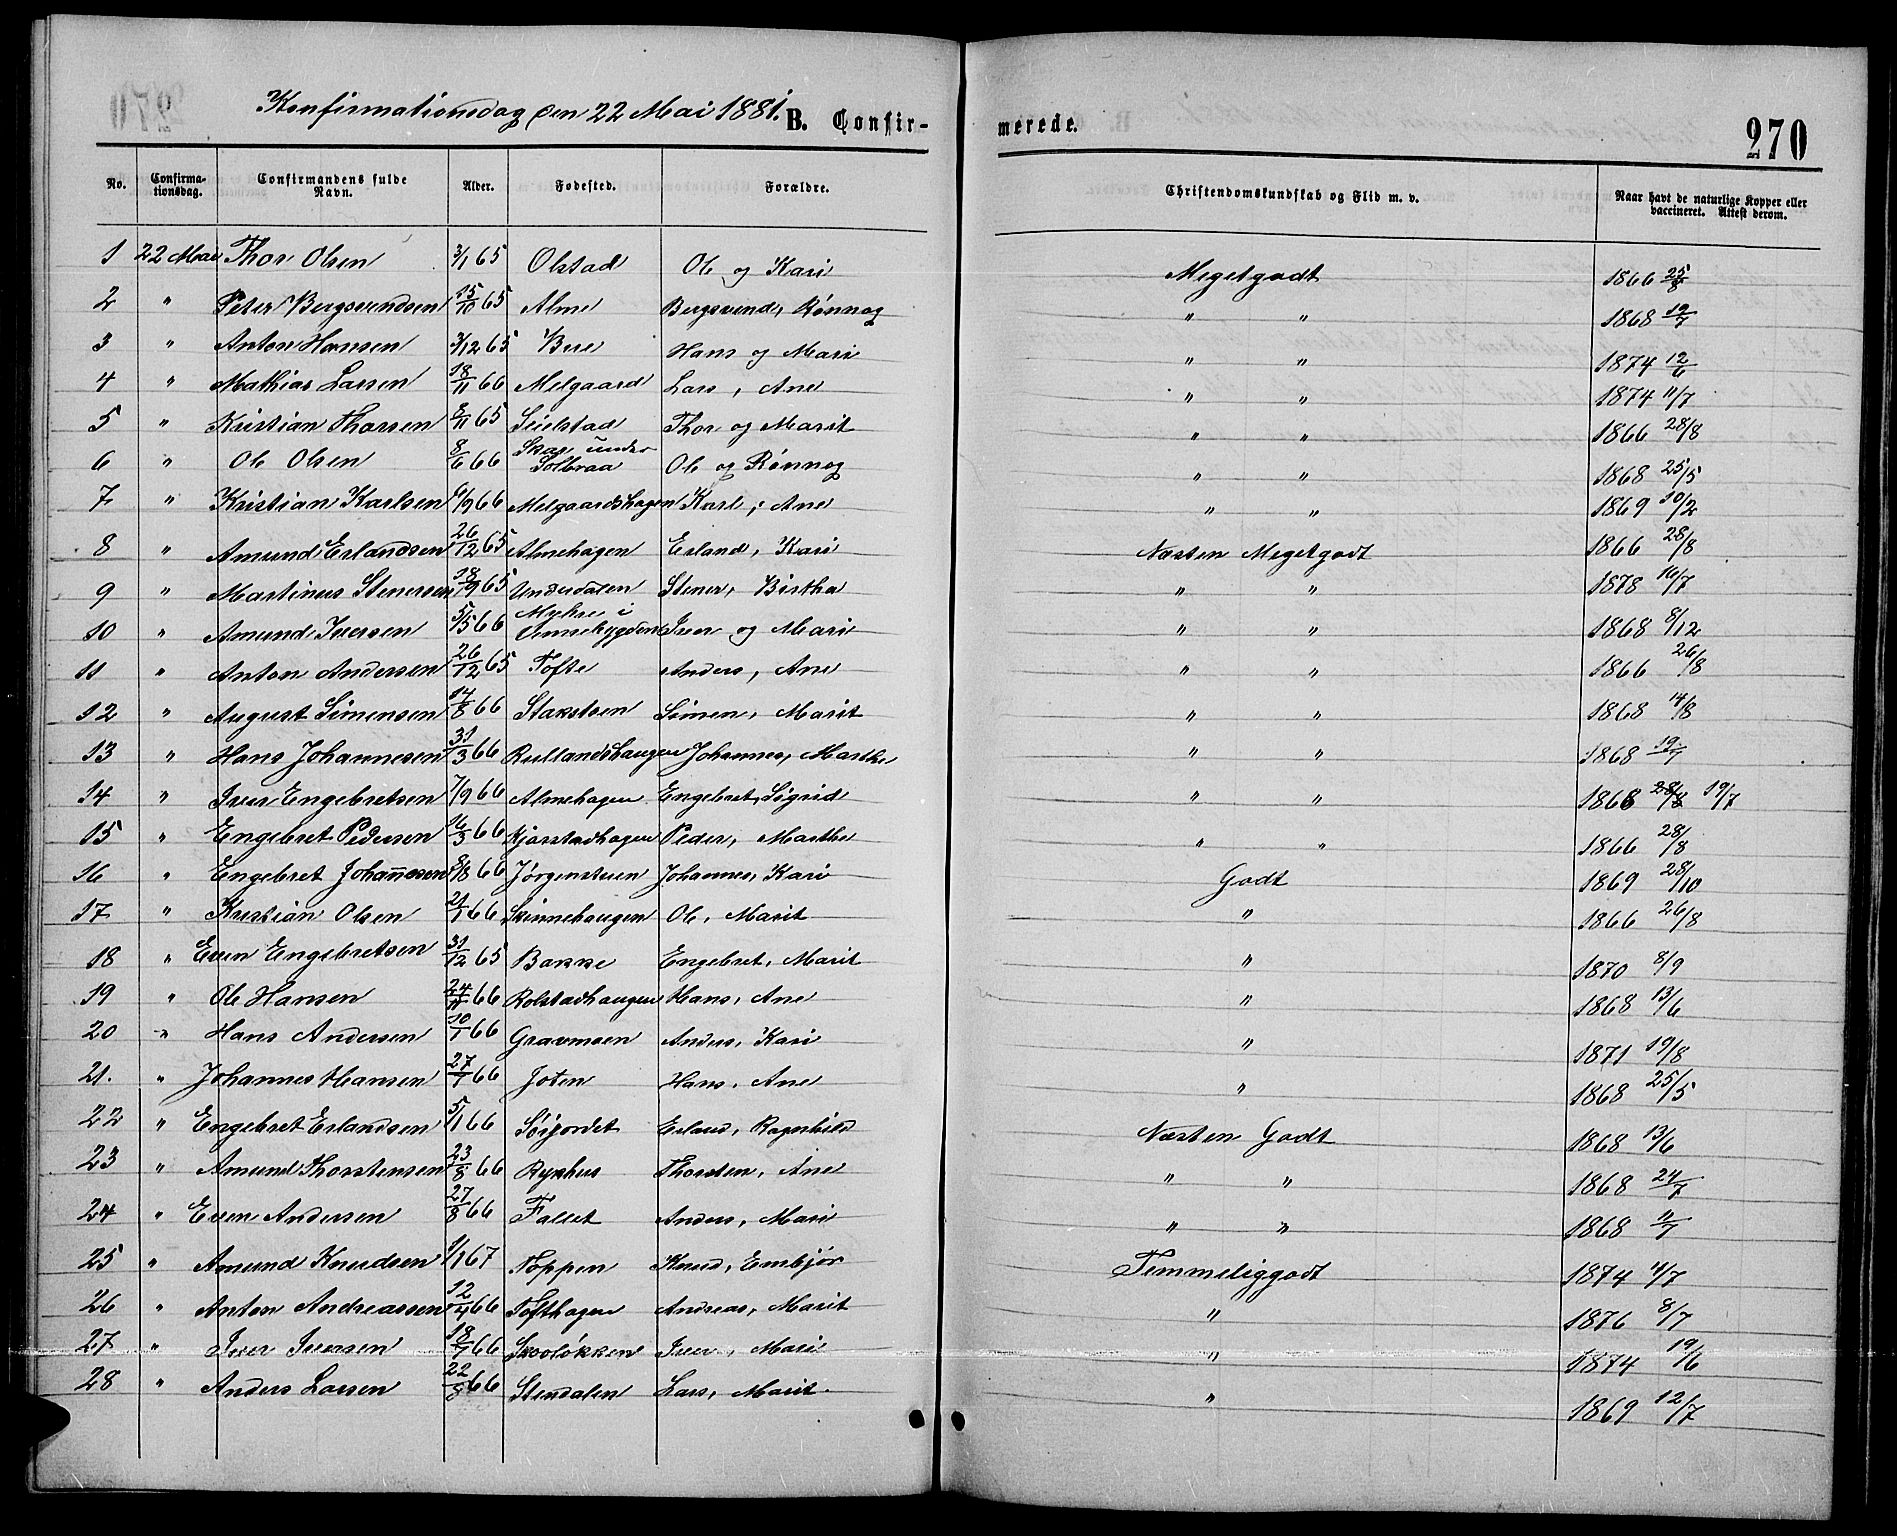 Konfirmationsdag den 22 Mai 1881. B. Confir-
merede. 270
No. Confirma-tionsdag. Confirmandens fulde Navn. Alder. Fødested. Forældre. Christendomskundskab og Flid m. v. Naar havt de naturlige Kopper eller vaccineret. Attest derom.
1 22 Mai Thor Olsen 3/1 65 Olstad Ole og Kari Megetgodt 1866 25/8
2 " Peter Bergsvendsen 15/10 65 Alme Bergsvend, Rønnog " " 1868 19/7
3 " Anton Hansen 3/12 65 Bue Hans og Mari " " 1874 12/6
4 " Mathias Larsen 18/11 66 Melgaard Lars, Ane " " 1874 11/7
5 " Kristian Thorsen 8/11 65 Seielstad Thor og Marit " " 1866 28/8
6 " Ole Olsen 8/6 66 Skar under Solbraa Ole og Rønnog " " 1868 25/5
7 " Kristian Karlsen 6/9 66 Melgaardshagen Karl, Ane " " 1869 10/2
8 " Amund Erlandsen 26/12 65 Almehagen Erland, Kari Næsten Megetgodt 1866 28/8
9 " Martinus Stenersen 65 Underdalen Stener, Birtha " " 1878 16/7
10 " Amund Iversen 5/5 66 i Iver og Mari " " 1868 8/12
11 " Anton Andersen 26/12 65 Tofte Anders, Ane " " 1866 26/8
12 " August Simensen 14/8 66 Stakstuen Simen, Marit " " 1868 14/8
13 " Hans Johannesen 31/3 66 Rullandshaugen Johannes, Marthe " " 1868 19/7
14 " Iver Engebretsen 7/9 66 Almehagen Engebret, Sigrid " " 1868 28/8 19/7
15 " Engebret Pedersen 16/3 66 Kjorstadhagen Peder, Marthe " " 1866 28/8
16 " Engebret Johannesen 8/8 66 Jørgenstuen Johannes, Kari Godt 1869 28/10
17 " Kristian Olsen 21/1 66 Skinnehaugen Ole, Marit " 1866 26/8
18 " Even Engebretsen 31/12 65 Bakke Engebret, Marit " 1870 8/9
19 " Ole Hansen 66 Rolstadhaugen Hans, Ane " 1868 13/6
20 " Hans Andersen 10/1 66 Gravmoen Anders, Kari " 1871 19/8
21. " Johannes Hansen 27/7 66 Joten Hans, Ane " 1868 25/5
22 " Engebret Erlandsen 5/1 66 Sørjordet Erland, Ragnhild Næsten Godt 1868 13/6
23 " Amund Thorstensen 23/8 66 Ryghus Thorsten, Ane " " 1868 24/7
24 " Even Andersen 27/8 66 Fallet Anders, Mari " " 1868 11/7
25 " Amund Knudsen 1/1 67 Toppen Knud, Embjør Temmeliggodt 1874 11/7
26 " Anton Andreassen 12/4 66 Tofthagen Andreas, Marit " 1876 8/7
27 " Iver Iversen 18/7 66 Skoløkken Iver, Mari " 1874 19/6
28 " Anders Larsen 22/8 66 Stendalen Lars, Marit. " 1869 12/7